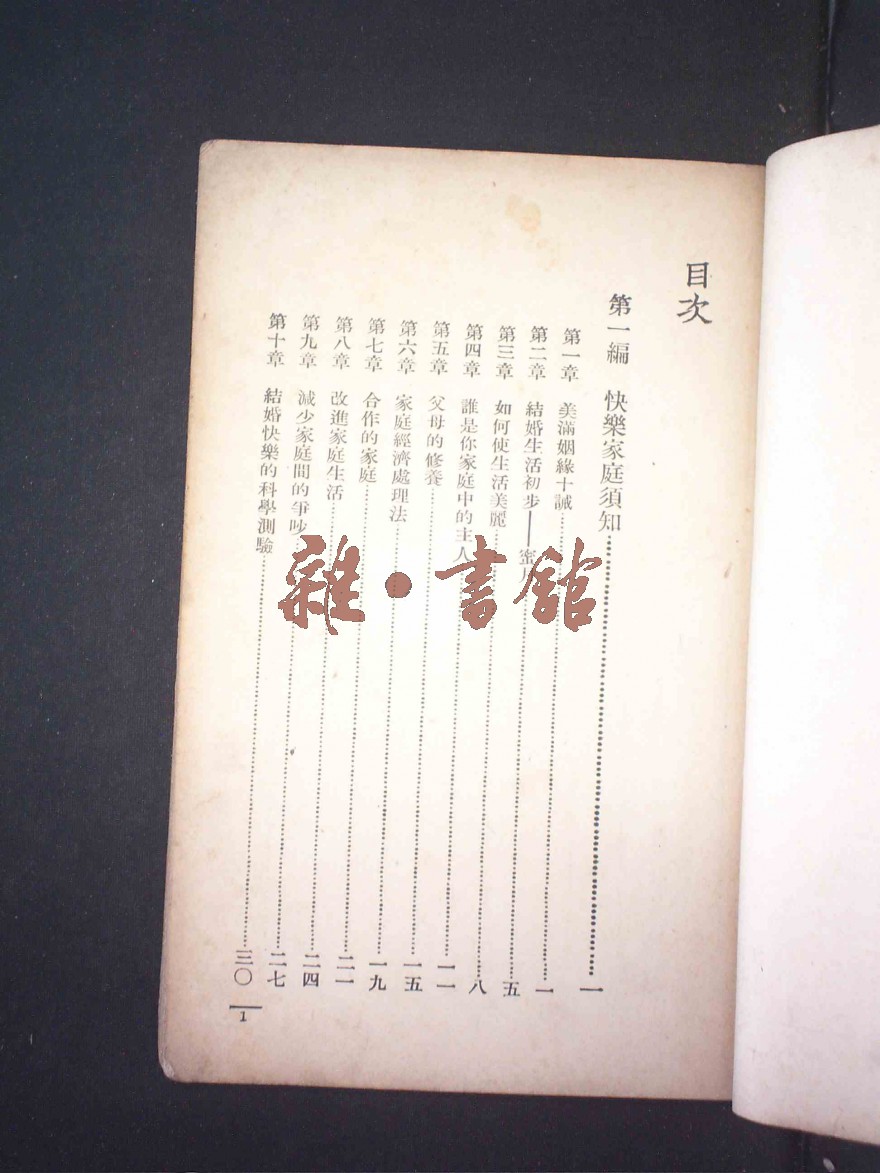 目次
第一編 快樂家庭須知……一
第一章 美滿姻緣十誡……一
第二章 結婚生活初步——蜜月……五
第三章 如何使生活美麗……八
第四章 誰是你家庭中的主人……一一
第五章 父母的修養……一五
第六章 家庭經濟處理法……一九
第七章 合作的家庭……二一
第八章 改進家庭生活……二四
第九章 減少家庭間的爭吵……二七
第十章 結婚快樂的科學測驗……三〇
1
雜·書館